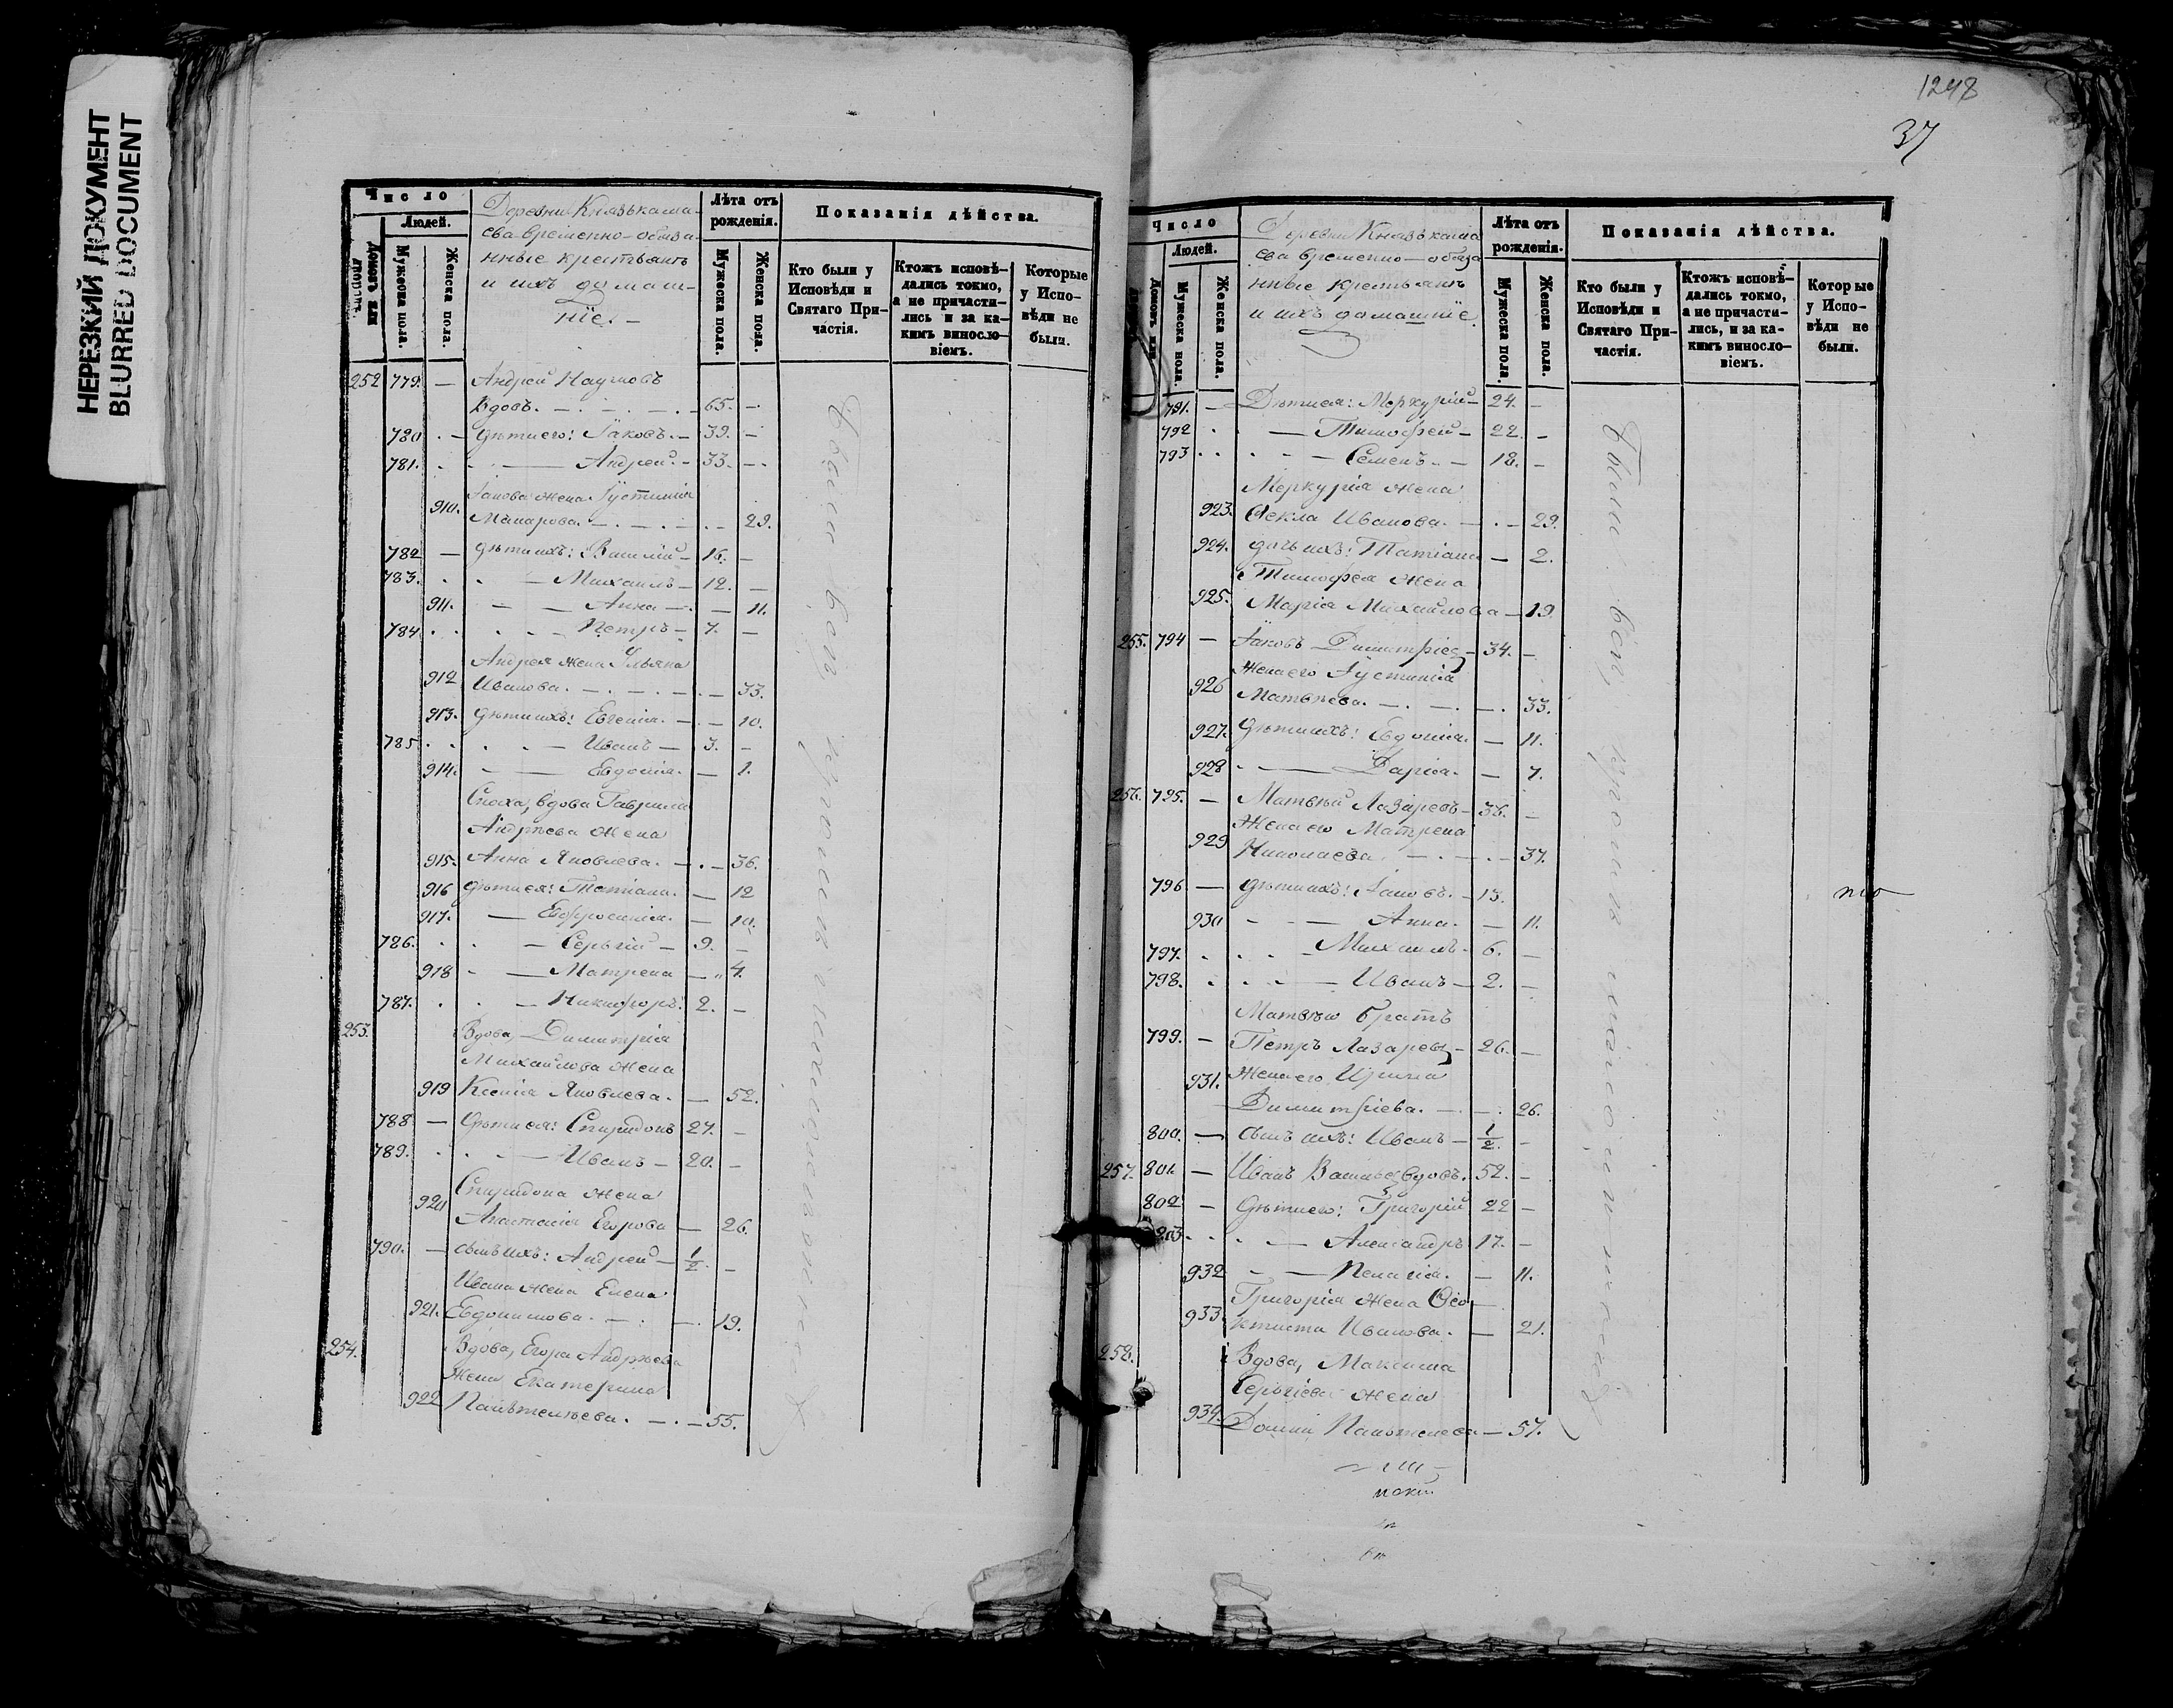 НЕРЕЗКИЙ ДОКУМЕНТ
BLURRED DOCUMENT
Число
Людей.
Домовъ или дворовъ.
Мужеска пола.
Женска пола.
Деревни Князькама-
ева временно-обяза-
нные крестьянъ
и ихъ домаш-
ніе.-
Лѣта отъ рожденія.
Мужеска пола.
Женска пола.
Показанія дѣйства.
Кто были у Исповѣди и Святаго При-частія.
Ктожъ исповѣ-дались токмо, а не причасти-лись и за ка-кимъ виносло-віемъ.
Которые у Испо-вѣди не были.
252 779. — Андрей Наумовъ
Вдовъ. — 65. —
780 — дѣти его: Іаковъ. — 39. —
781. — Андрей. — 33. —
Іакова жена Іустинія
910. Макарова. — 29.
782 — дѣти ихъ: Василій — 16. —
783. — Михаилъ — 12. —
911. — Анна — 11.
784. — Петръ — 7. —
Андрея жена Ульяна
912 Иванова. — 33.
913. дѣти ихъ: Евгенія. — 10.
785. — Иванъ — 3. —
914. — Евдокія. — 1.
Сноха, вдова Гавриила
Андреева жена
915. Анна Яковлева. — 36.
916 дѣти ея: Татіана. — 12
917. — Евфросинія. — 10.
786. — Сергій — 9. —
918 — Матрена — 4.
787. — Никифоръ. 2. —
253. Вдова, Димитрія
Михайлова жена
919 Ксенія Яковлева. — 52.
788 — дѣти ея: Спиридонъ 27. —
789. — Иванъ — 20. —
Спиридона жена
920 Анастасія Егорова — 26.
790. — сынъ ихъ: Андрей — 1/2. —
Ивана жена Елена
921. Евдокимова. — 19.
254. Вдова, Егора Андреева
жена Екатерина
922 Пантелеева. — 55.
1248
37
Число
Людей.
Домовъ или
Мужеска пола.
Женска пола.
Деревни Князькама
ева временно-обяза
нные крестьянъ
и ихъ домашніе
Лѣта отъ рожденія.
Мужеска пола.
Женска пола.
Показанія дѣйства.
Кто были у Исповѣди и Святаго При-частія.
Ктожъ исповѣ-дались токмо, а не причасти-лись, и за ка-кимъ виносло-віемъ.
Которые у Испо-вѣди не были.
791. — Дѣти ея: Меркурій — 24. —
792 — Тимофей — 22. —
793 — Семенъ — 18. —
Меркурія жена
923. Ѳекла Иванова. — 29.
924. дочь ихъ: Татіана — 2.
Тимофея жена
925. Марія Михайлова — 19
255. 794 — Іаковъ Димитріев — 34. —
Жена его Іустинія
926 Матвѣева. — 33.
927. дѣти ихъ: Евдокія. — 11.
928 — Дарія. — 7.
256. 795. — Матвѣй Лазаревъ — 36. —
Жена его Матрена
929 Николаева. — 37.
796 — дѣти ихъ: Іаковъ. — 13.
930 — Анна. — 11.
797. — Михаилъ. 6. —
798. — Иванъ — 2. —
Матвѣю братъ
799. — Петръ Лазарев — 26. —
931. Жена его Ирина
Димитріева. — 26.
800. — сынъ ихъ: Иванъ — 1/2. —
257. 801 — Иванъ Васильев вдовъ. 52. —
802 — Дѣти его: Григорій 22 —
803 — Александръ 17. —
932 — Пелагія. — 11.
Григорія жена Ѳео-
933. ктиста Иванова. — 21.
258. Вдова, Максима
Сергіева жена
934. Домна Пантелеева — 57.